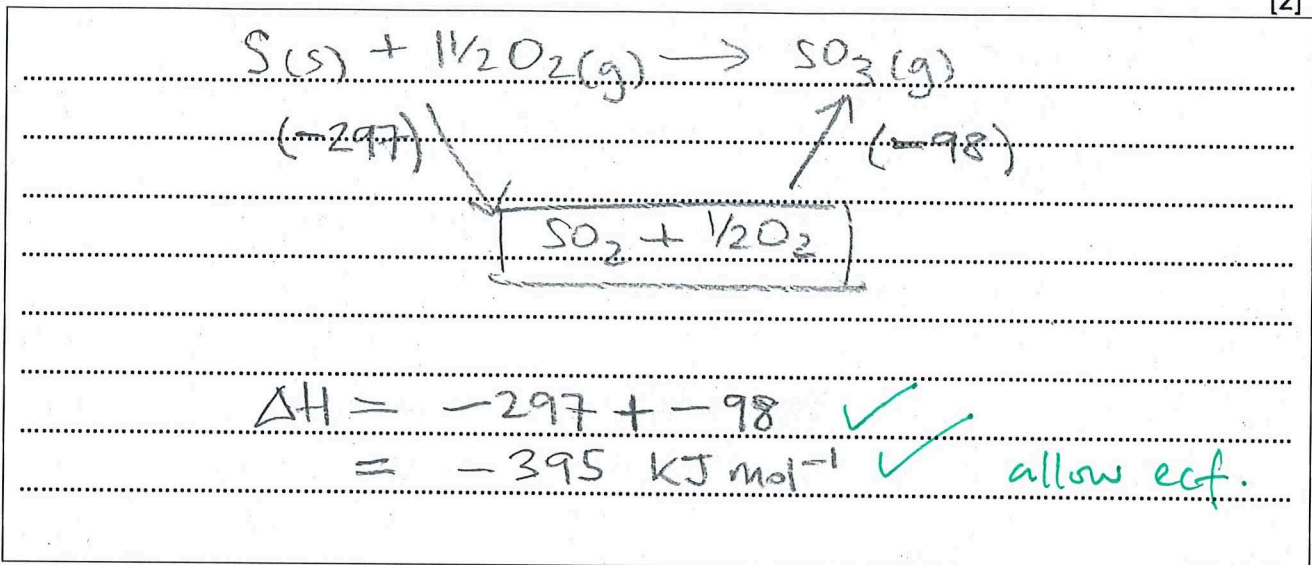 [2]
S(s) + 1½O₂(g) → SO₃(g)
(-297) (-98)
SO₂ + ½O₂
ΔH = -297 + -98 ✓
= -395 KJ mol⁻¹ ✓ allow ecf.